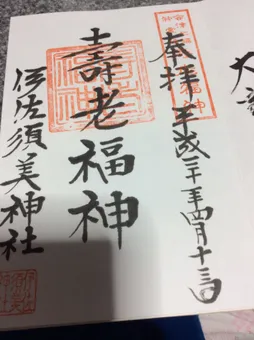 奉拝 平成三十年四月十三日
壽老福神
伊佐須美神社